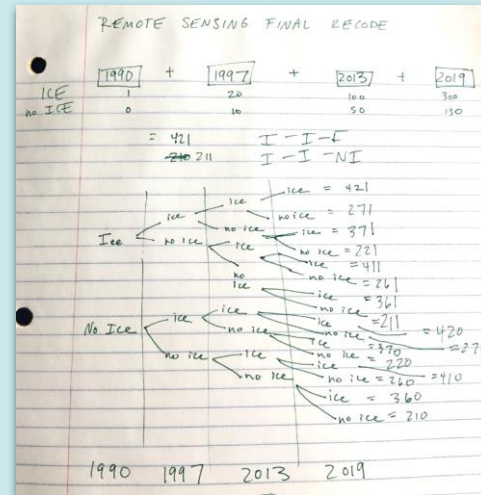 REMOTE SENSING FINAL RECODE
1990 + 1997 + 2013 + 2019
ICE 1 20 100 300
no ICE 0 10 50 150
= 421 I - I - I
210 211 I - I - NI
ice = 421
ice
no ice = 271
ice
no ice ice = 371
Ice no ice ice no ice = 221
ice = 411
no ice no ice = 261
ice = 361
no ice = 211
No Ice ice ice ice = 420
no ice no ice = 270
ice = 370
no ice = 220
no ice ice ice = 410
no ice no ice = 260
ice = 360
no ice = 210
1990 1997 2013 2019